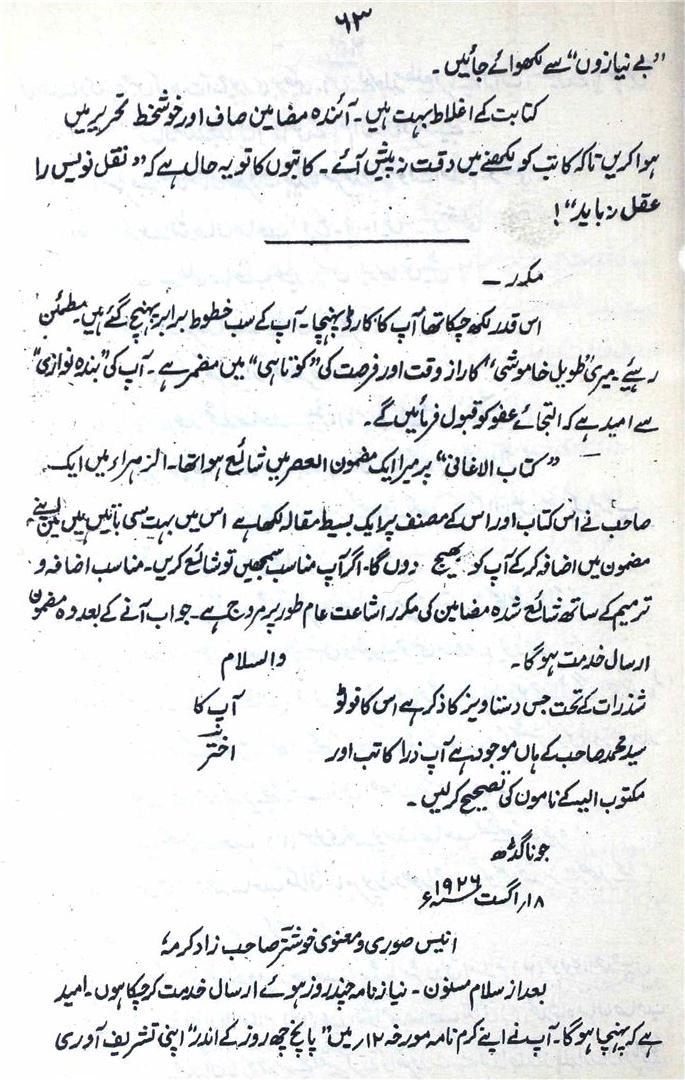 ۶۳
”بے نیازوں“ سے لکھوائے جائیں۔
کتابت کے اغلاط بہت ہیں۔ آئندہ مضامین صاف اور خوشخط تحریر میں
ہوا کریں تاکہ کاتب کو لکھنے میں دقت نہ پیش آئے۔ کاتبوں کا تو یہ حال ہے کہ ”نقل نویس را
عقل نہ باید“!
مکرر۔
اس قدر لکھ چکا تھا آپ کا کارڈ پہنچا۔ آپ کے سب خطوط برابر پہنچ گئے ہیں۔ مطمئن
رہیے۔ میری ”طویل خاموشی“ کا راز وقت اور فرصت کی ”کوتاہی“ میں مضمر ہے۔ آپ کی ”بندہ نوازی“
سے امید ہے کہ التجائے عفو کو قبول فرمائیں گے۔
”کتاب الاغانی“ پر میرا ایک مضمون العصر میں شائع ہوا تھا۔ الزہراء میں ایک
صاحب نے اس کتاب اور اس کے مصنف پر ایک بسیط مقالہ لکھا ہے اس میں بہت سی باتیں ہیں میں اپنے
مضمون میں اضافہ کر کے آپ کو بھیج دوں گا۔ اگر آپ مناسب سمجھیں تو شائع کریں۔ مناسب اضافہ و
ترمیم کے ساتھ شائع شدہ مضامین کی مکرر اشاعت عام طور پر مروج ہے۔ جواب آنے کے بعد وہ مضمون
ارسال خدمت ہوگا۔ والسلام
شذرات کے تحت جس دستاویز کا ذکر ہے اس کا فوٹو آپ کا
سید محمد صاحب کے ہاں موجود ہے آپ ذرا کاتب اور اختر
مکتوب الیہ کے ناموں کی تصحیح کر لیں۔
جوناگڈھ
۱۸؍ اگست ۱۹۲۶ء
انیس صوری و معنوی خوشتر صاحب زاد کرمہٗ
بعد از سلام مسنون۔ نیاز نامہ چند روز ہوئے ارسال خدمت کر چکا ہوں۔ امید
ہے کہ پہنچا ہوگا۔ آپ نے اپنے کرم نامہ مورخہ ۱۲؍ میں ”پانچ چھ روز کے اندر“ اپنی تشریف آوری